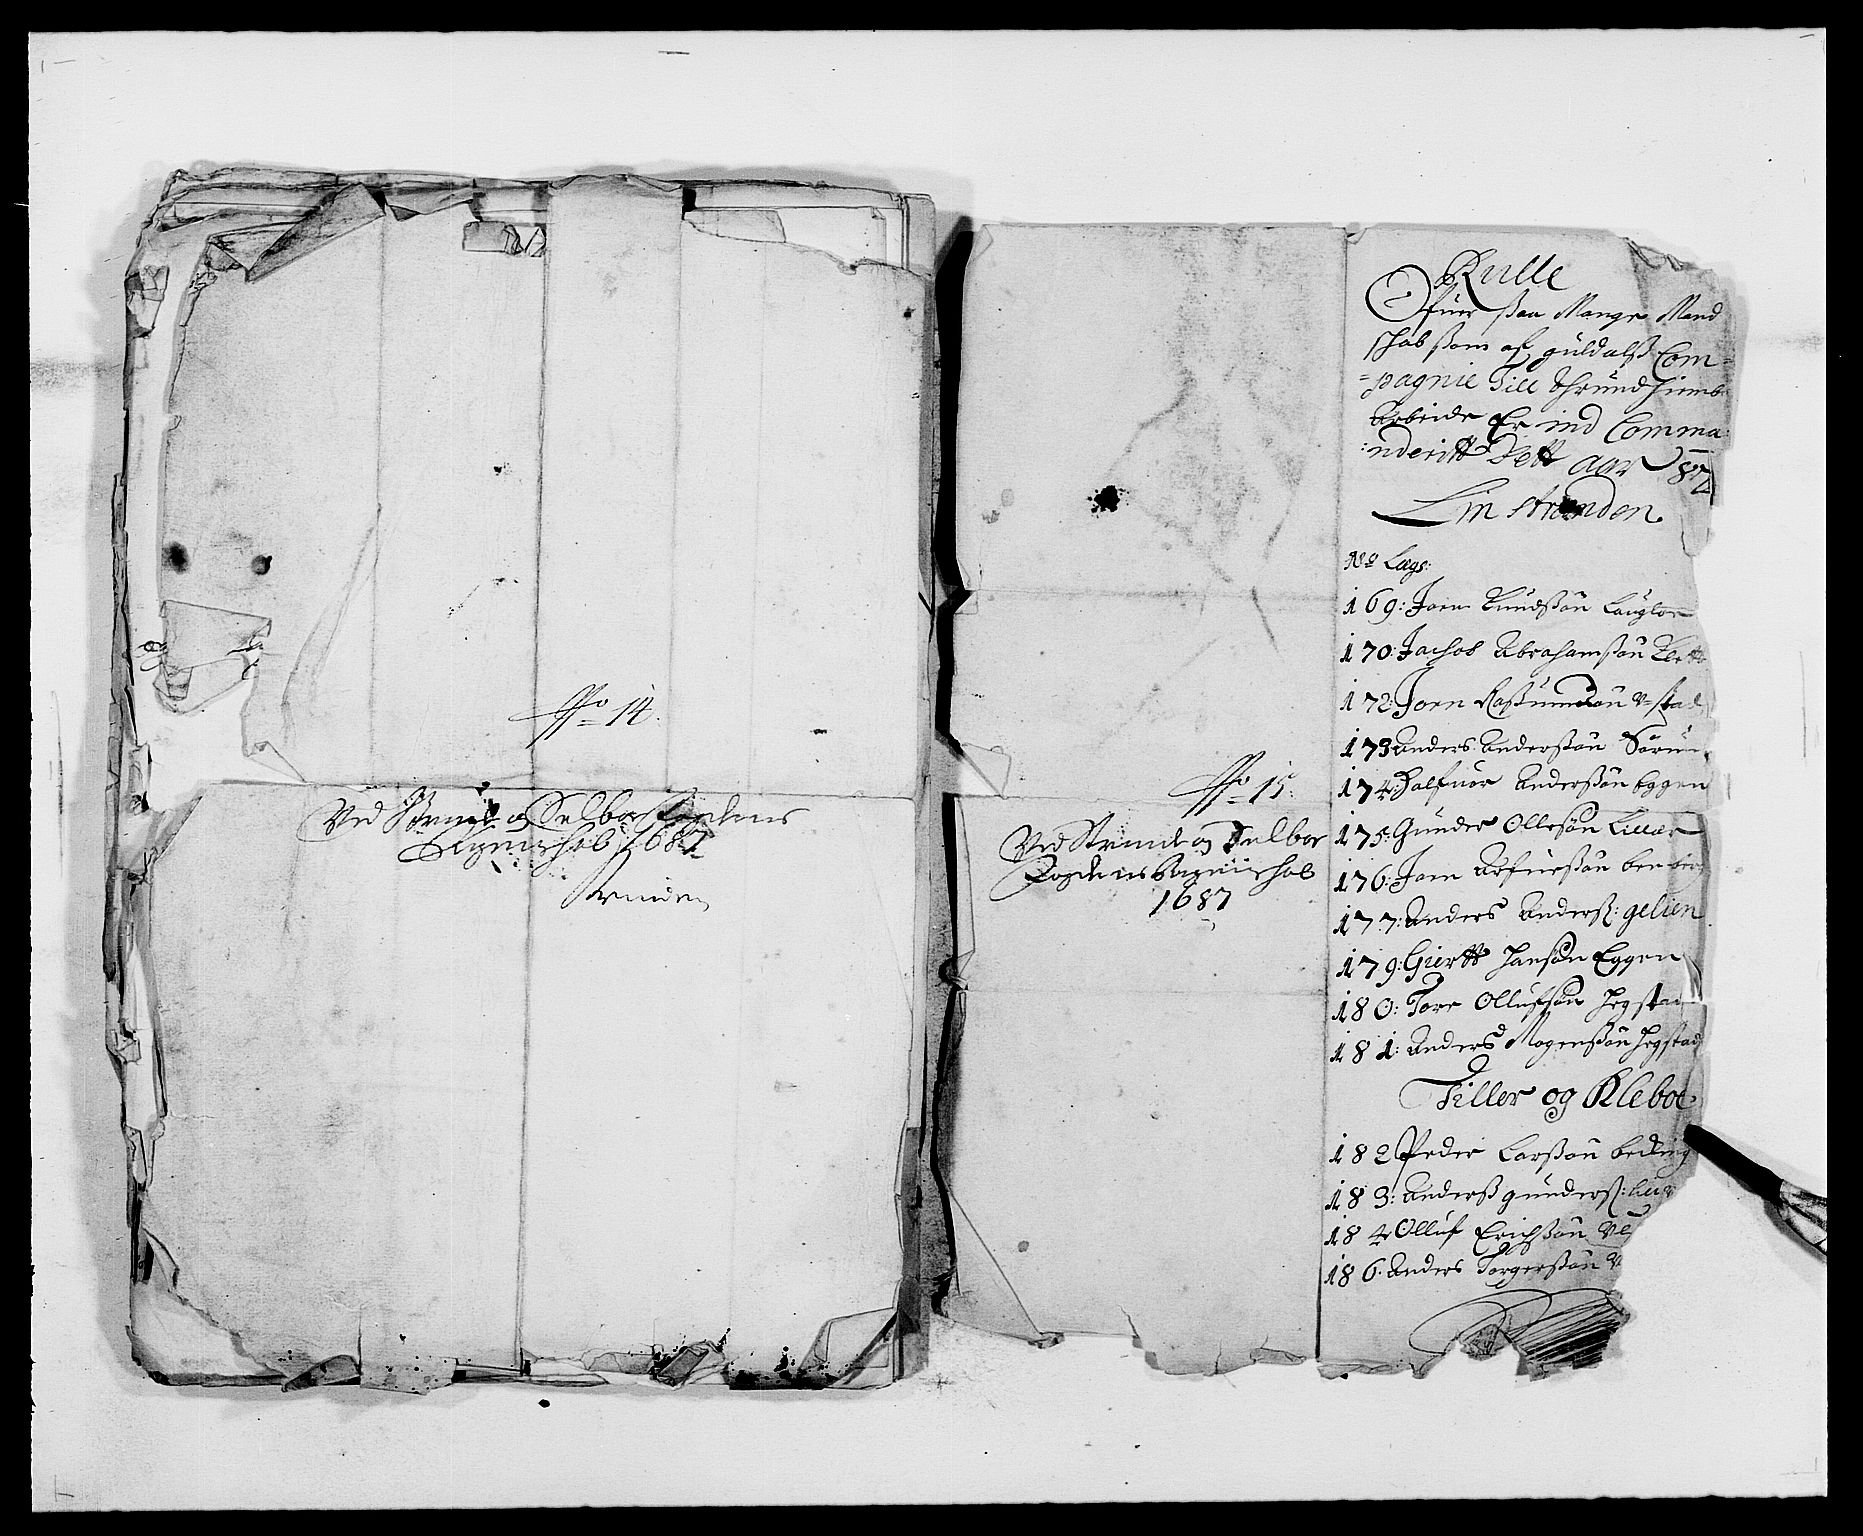 No 14.
Ved Strind og Selboe Fogderies
Regnschab 1687
Strinden
No 15.
Ved Strind og Selboe
Fogderies Regnschab
1687
Rulle
Ofuer saa Mange Mand
schab som af guldalss Com=
=pagnie Till Thrundhiembs
Arbeide Er ind Comma:
:nderitt Dett aar 87
Lin stranden.
No Legs:
169: Joen Knudssøn
170: Jachob Abrahamssøn Klett
172: Joen Rassmussøn
173 Anders Anderssøn
174: Halfuor Anderssøn Eggen
175: Gunder Ollesøn
176: Joen
177: Anders Anderss:
179: Giertt Hansøn Eggen
180: Tore Ollufsøn Hegstad
181: Anders Mogenssøn Hegstad
Tiller og Kleboe.
182 Peder Larssøn
183: Anderss gunderss:
184 Olluf Erichssøn
186. Anders Torgerssøn